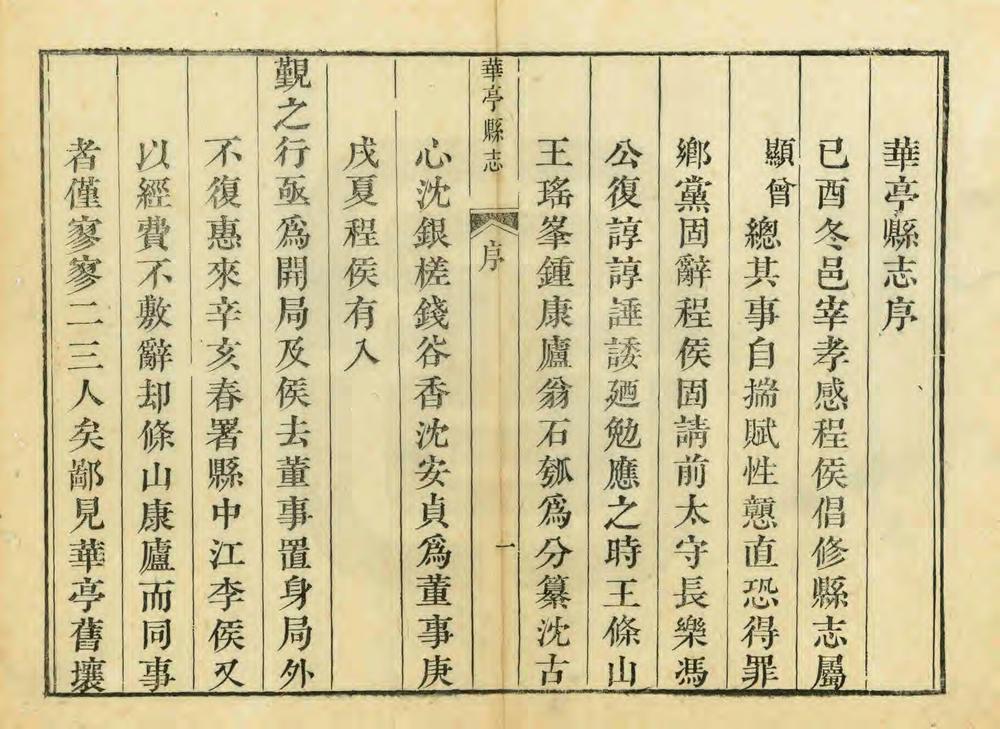 華亭縣志序
己酉冬邑宰孝感程侯倡修縣志屬
顯曾總其事自揣賦性戇直恐得罪
鄉黨固辭程侯固請前太守長樂馮
公復諄諄諈諉廼勉應之時王條山
王瑤峯鍾康廬翁石瓠爲分纂沈古
華亭縣志
序
一
心沈銀槎錢谷香沈安貞爲董事庚
戌夏程侯有入
覲之行亟爲開局及侯去董事置身局外
不復惠來辛亥春署縣中江李侯又
以經費不敷辭却條山康廬而同事
者僅寥寥二三人矣鄙見華亭舊壤